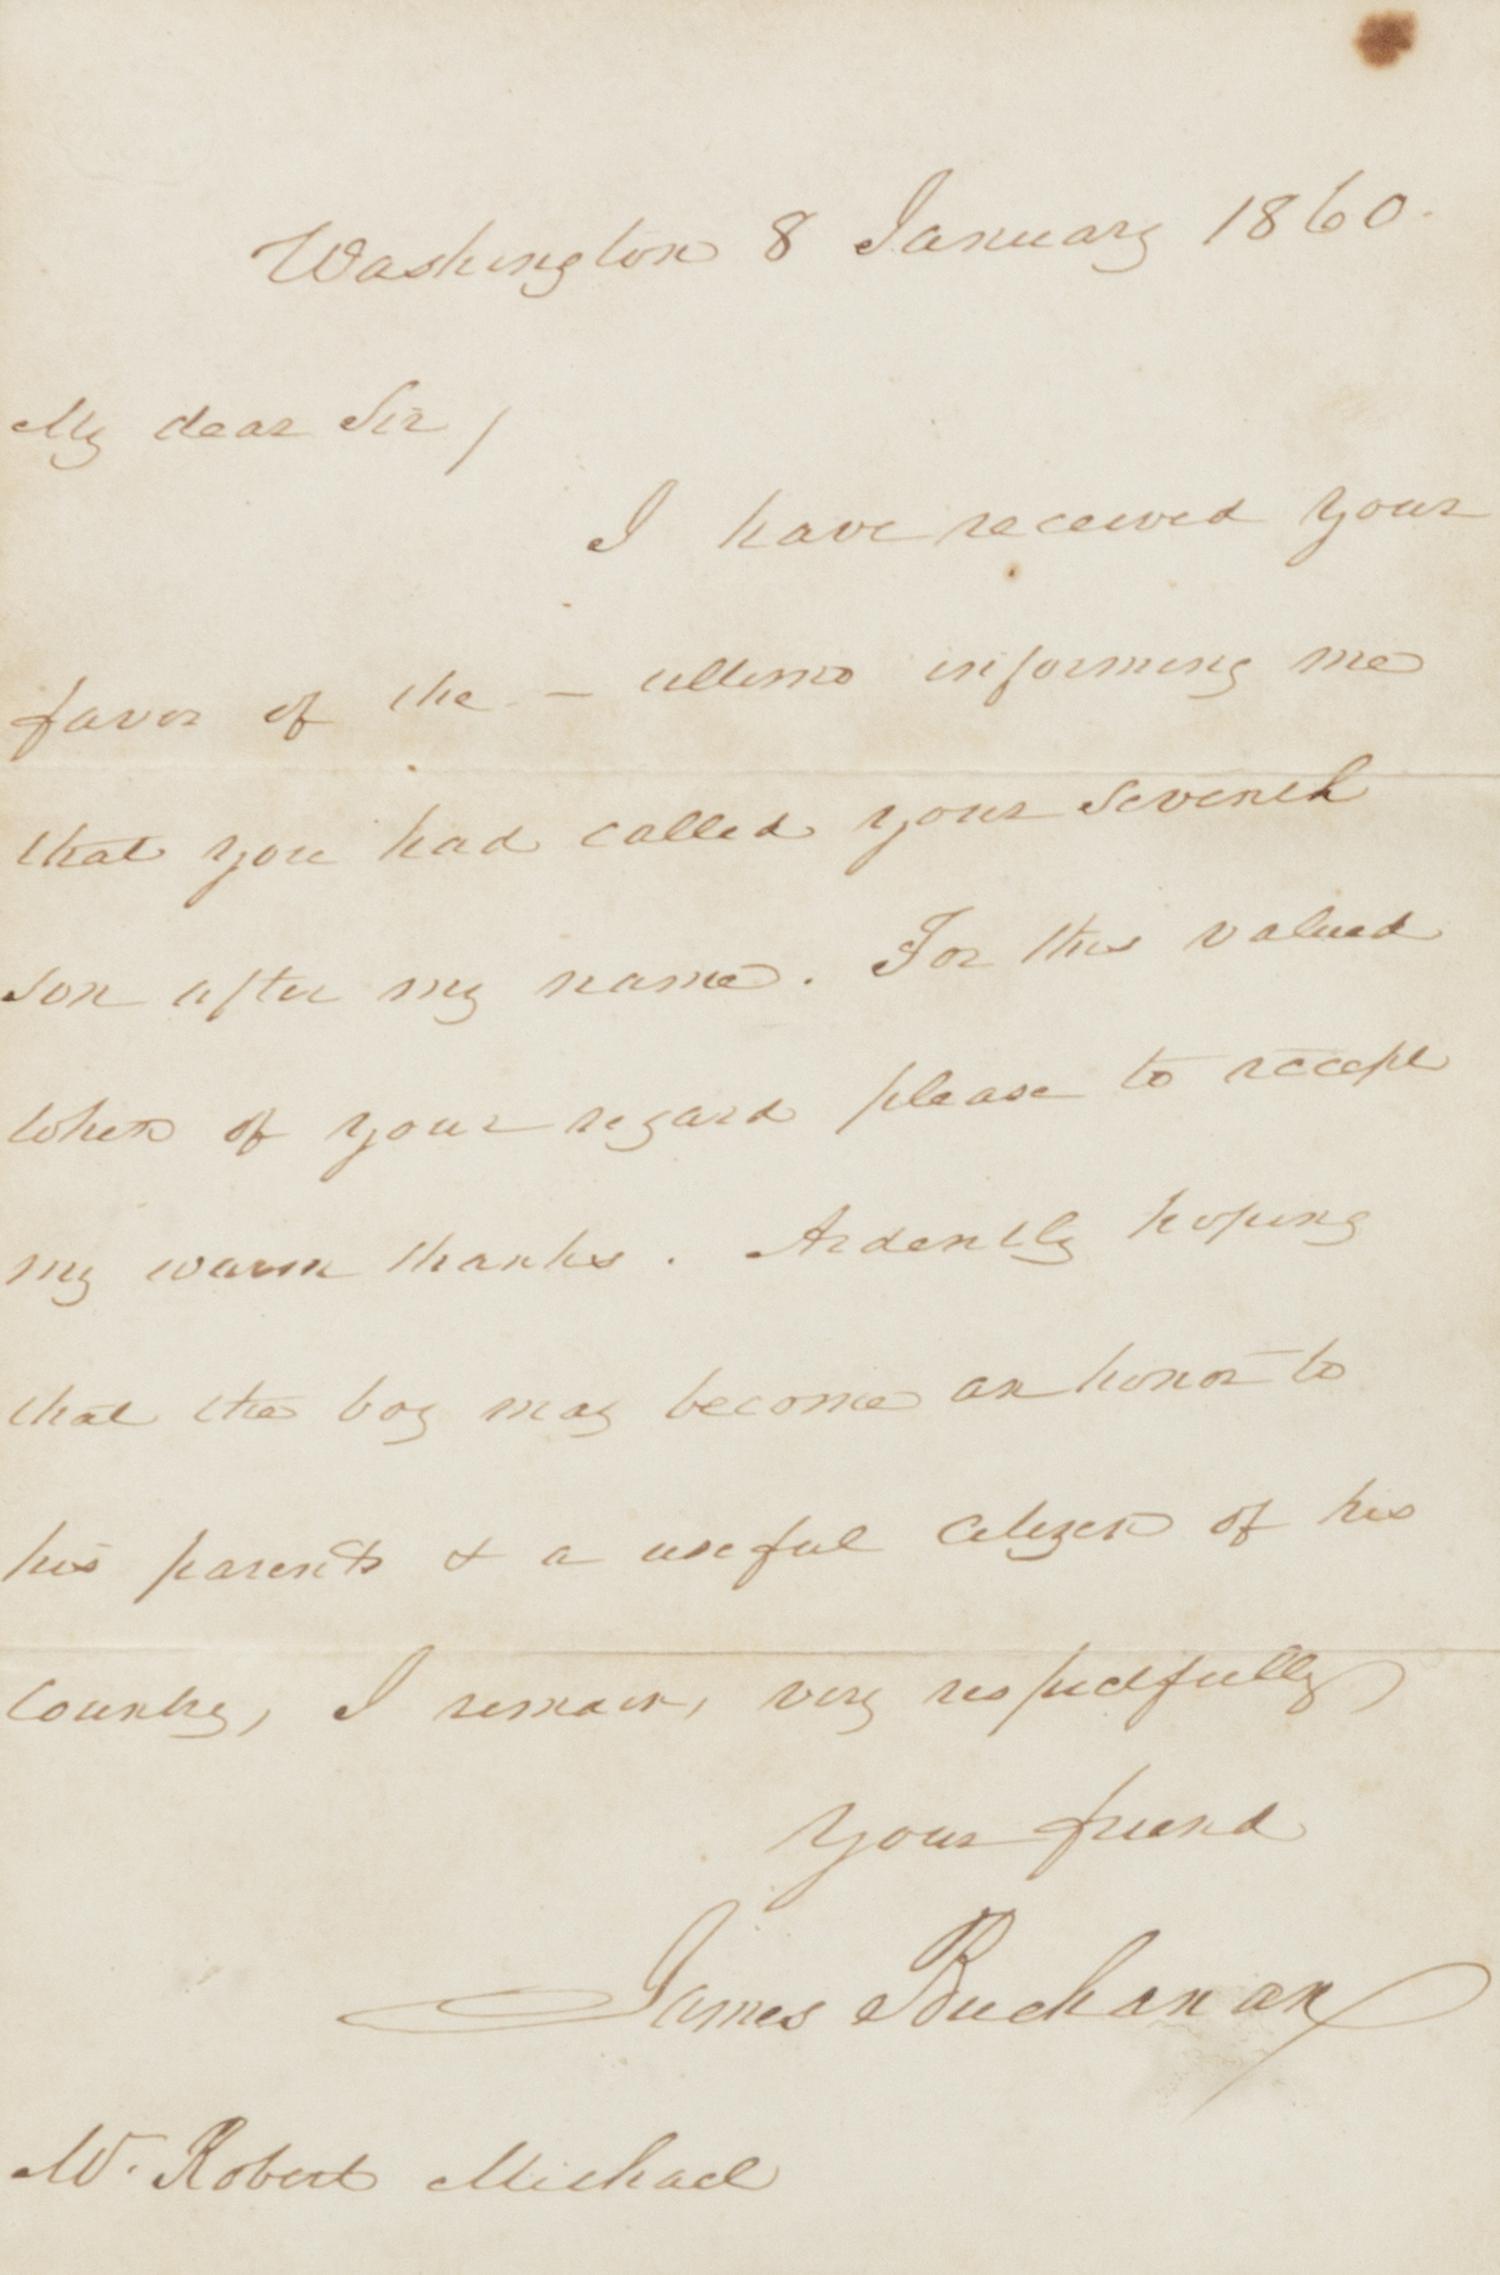 Washington 8 January 1860.
My dear Sir/
I have received your
favor of the — ultimo informing me
that you had called your seventh
son after my name. For this valued
token of your regard please to accept
my warm thanks. Ardently hoping
that the boy may become an honor to
his parents & a useful citizen of his
Country, I remain, very respectfully
Your friend
James Buchanan
Mr. Robert Michael